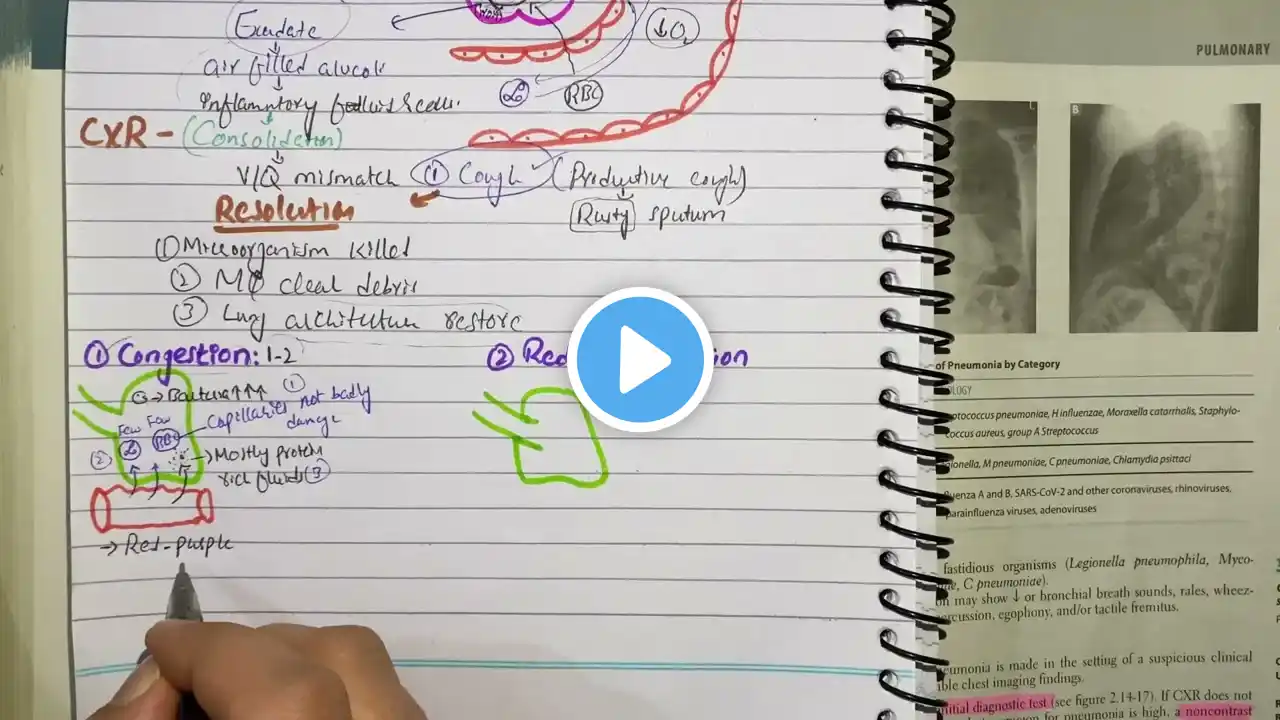 Exudate
air filled alveoli
Inflammatory fluid & cells.
CXR - (Consolidation)
V/Q mismatch ① Cough (Productive cough)
Rusty sputum
Resolution
① Microorganism killed
② Mφ clear debris
③ Lung architecture restore
↓O₂
RBC
① Congestion: 1-2
② Red
ion
→ Bacteria ①
Capillaries not badly
damage
Few Few
② RBC
→ Mostly protein
rich fluids ③
→ Red-purple
PULMONARY
L
B
of Pneumonia by Category
OLOGY
ptococcus pneumoniae, H influenzae, Moraxella catarrhalis, Staphylo-
coccus aureus, group A Streptococcus
gionella, M pneumoniae, C pneumoniae, Chlamydia psittaci
uenza A and B, SARS-CoV-2 and other coronaviruses, rhinoviruses,
parainfluenza viruses, adenoviruses
fastidious organisms (Legionella pneumophila, Myco-
ae, C pneumoniae).
on may show ↓ or bronchial breath sounds, rales, wheez-
ercussion, egophony, and/or tactile fremitus.
eumonia is made in the setting of a suspicious clinical
ible chest imaging findings.
nitial diagnostic test (see figure 2.14-17). If CXR does not
for pneumonia is high, a noncontrast